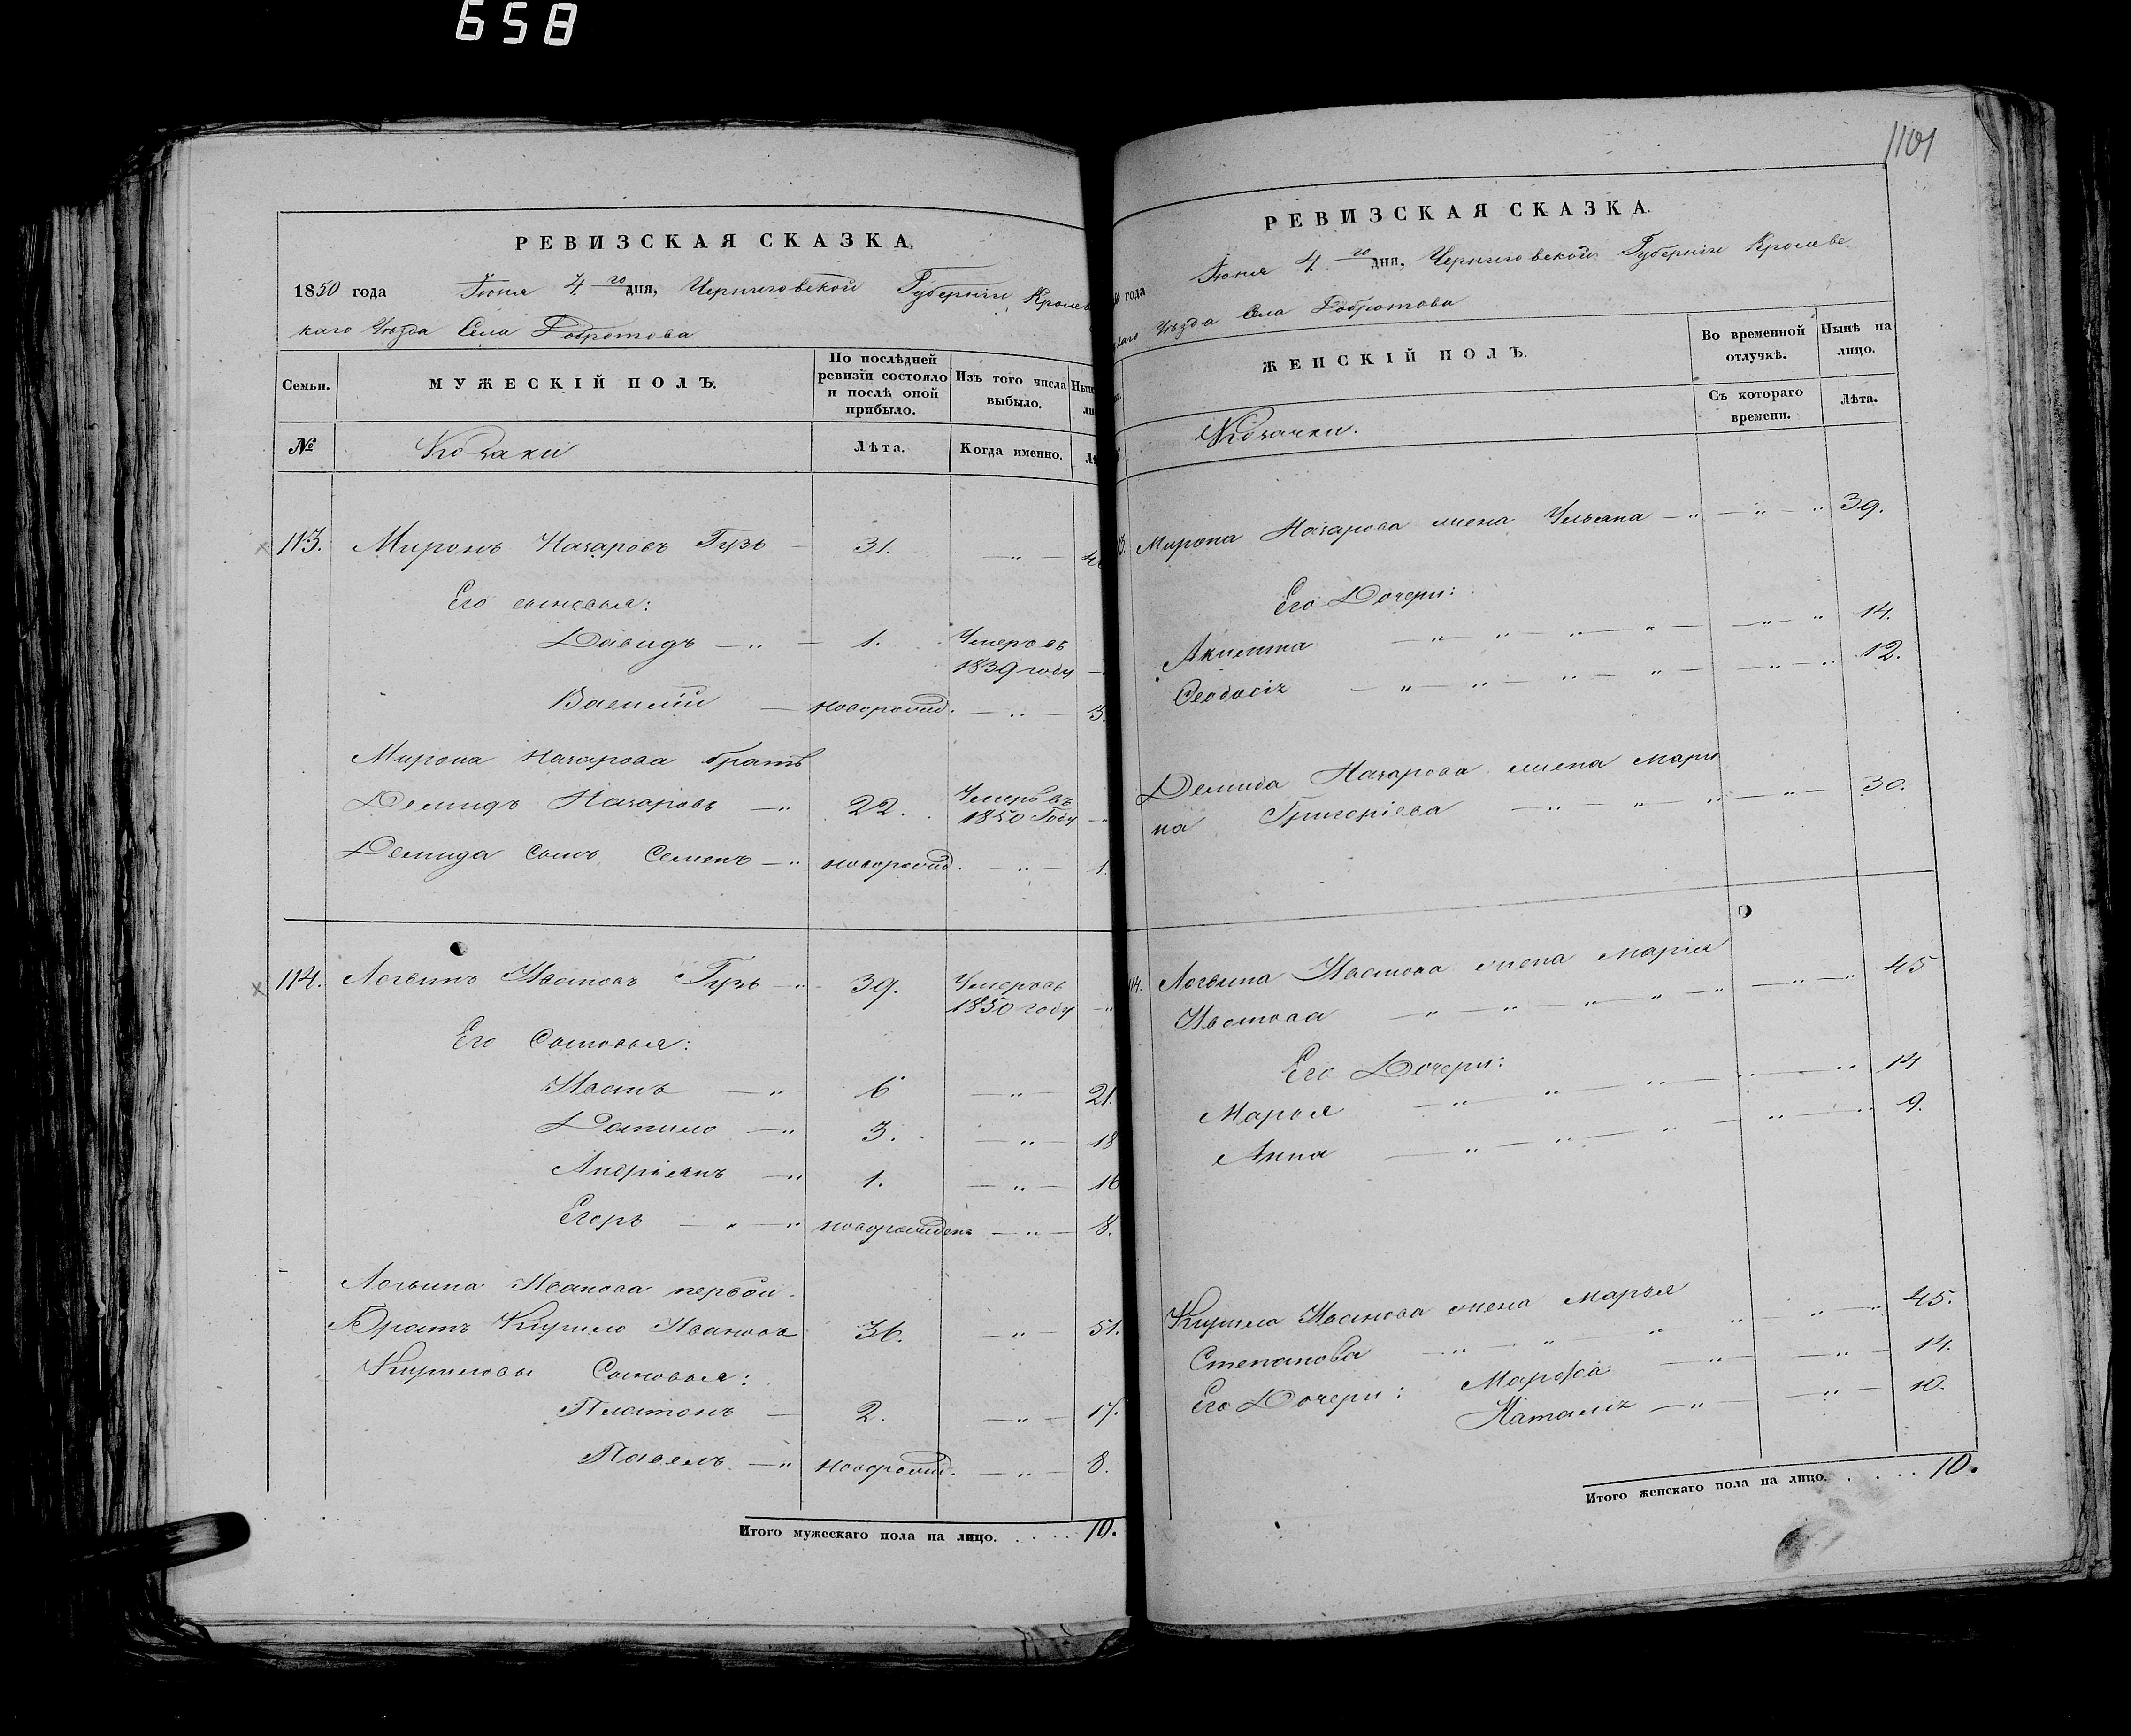 658
РЕВИЗСКАЯ СКАЗКА.
1850 года Іюня 4 го дня, Черниговской Губерніи Кролев
каго Уѣзда Села Добротова
Семьи.
МУЖЕСКІЙ ПОЛЪ.
По послѣдней ревизіи состояло и послѣ оной прибыло.
Изъ того числа выбыло.
№
Козаки
Лѣта.
Когда именно.
113. Миронъ Назаровъ Гузь — 31. — „ —
Его сыновья:
Давидъ — „ — 1. Умеръ въ
1839 году —
Василій — новорожд. — „ — 3.
Мирона Назарова братъ
Демидъ Назаровъ — „ 22. Умеръ въ
1850 Году — „
Демида сынъ Семенъ — „ новорожд. — „ — 1.
114. Логвинъ Ивановъ Гузь — „ 39. Умеръ въ
1850 году — „
Его Сыновья:
Иванъ — „ 6 — „ — 21.
Данило — „ 3. — „ — 18
Андріянъ — „ 1. — „ — 16
Егоръ — „ — „ новорожденъ — „ — 8.
Логвина Иванова первой
Братъ Кирило Ивановъ 36. — „ — 51.
Кириловы Сыновья:
Платонъ — 2. — „ — 17.
Павелъ — „ новорожд. — „ — 8.
Итого мужескаго пола на лицо. . . . . 10.
1101
РЕВИЗСКАЯ СКАЗКА.
года Іюня 4. го дня, Черниговской Губерніи Кролеве
каго Уѣзда Села Добротова
ЖЕНСКІЙ ПОЛЪ.
Во временной отлучкѣ.
Нынѣ на лицо.
Съ котораго времени.
Лѣта.
Козачки.
Мирона Назарова жена Ульяна — „ — „ — „ 39.
Его Дочери:
Акилина — „ — „ — „ — „ — — „ — „ 14.
Ѳеодосія — „ — „ — „ — „ — — „ — „ 12.
Демида Назарова жена Мари
на Григоріева — „ — „ — „ — „ — 30.
114. Логвина Иванова жена Марія
Иванова — „ — „ — „ — „ — „ — „ — „ 45
Его Дочери:
Марья — „ — „ — „ — „ — „ 14
Анна — „ — „ — „ — „ — „ 9.
Кирила Иванова жена Марья
Степанова — „ — „ — „ — „ — „ — „ 45.
Его Дочери: Марѳа — „ — „ — 14.
Наталія — „ — — „ — 10.
Итого женскаго пола на лицо. . . . . 10.